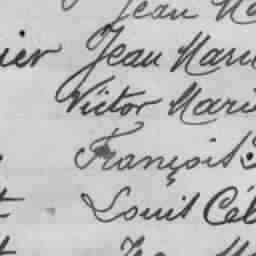 Jean
ier Jean Marie
Victor Marie
François
Louis Cél